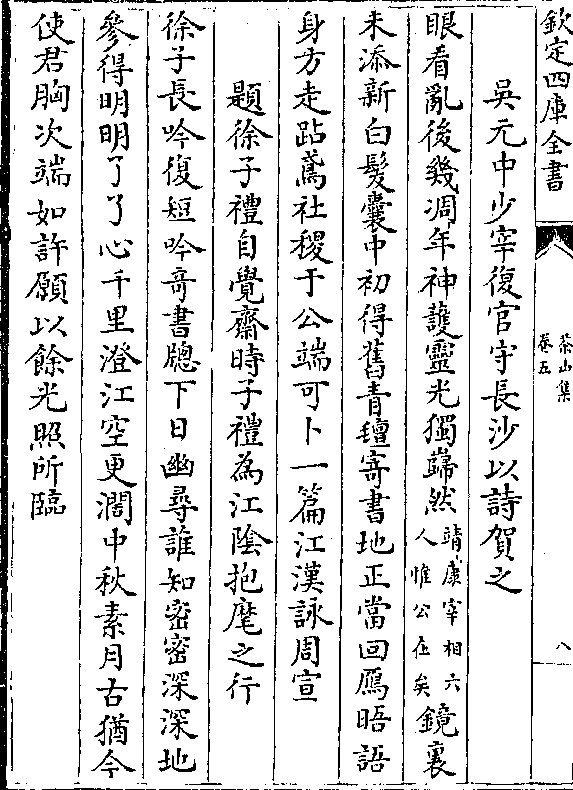 欽定四庫全書
茶山集
卷五
八
吳元中少宰復官守長沙以詩賀之
眼看亂後幾凋年神護靈光獨巋然靖康宰相六人惟公在矣鏡裏
未添新白髮囊中初得舊青氊寄書地正當回鴈晤語
身方走跕鳶社稷于公端可卜一篇江漢詠周宣
題徐子禮自覺齋時子禮為江陰抱麾之行
徐子長吟復短吟奇書牎下日幽尋誰知密密深深地
參得明明了了心千里澄江空更濶中秋素月古猶今
使君胸次端如許願以餘光照所臨